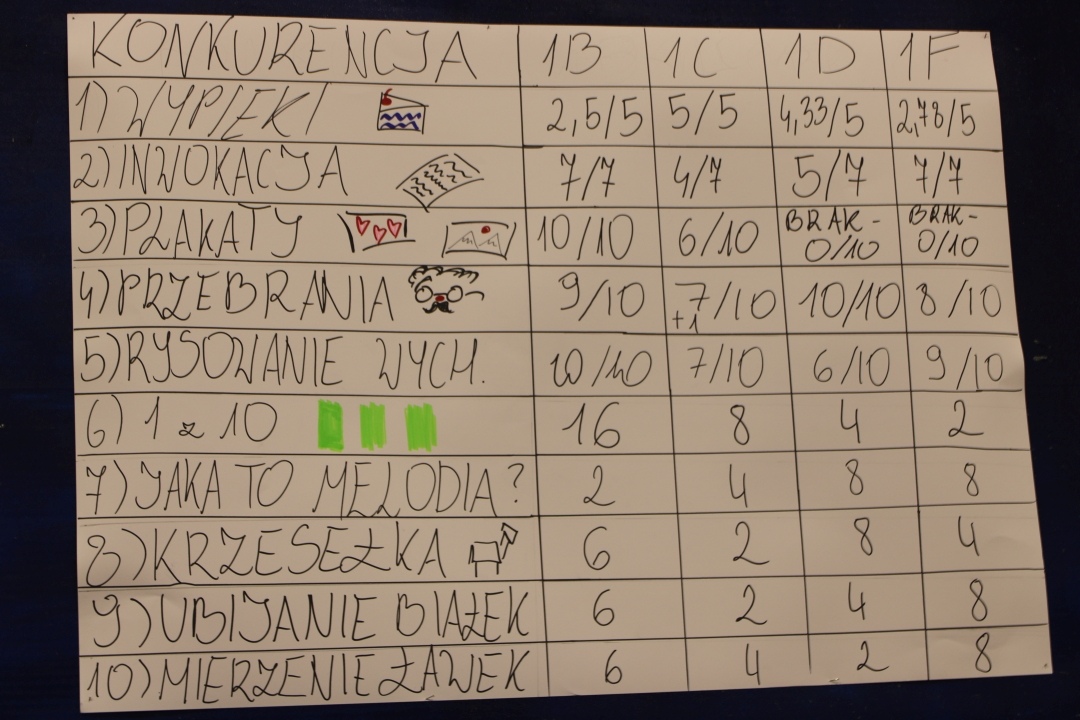 KONKURENCJA 1B 1C 1D 1F
1) WYPIEKI 2,5/5 5/5 4,33/5 2,78/5
2) INWOKACJA 7/7 4/7 5/7 7/7
3) PLAKATY 10/10 6/10 BRAK - 0/10 BRAK - 0/10
4) PRZEBRANIA 9/10 7/10 +1 10/10 8/10
5) RYSOWANIE WYCH. 10/10 7/10 6/10 9/10
6) 1 z 10 16 8 4 2
7) JAKA TO MELODIA? 2 4 8 8
8) KRZESEŁKA 6 2 8 4
9) UBIJANIE BIAŁEK 6 2 4 8
10) MIERZENIE ŁAWEK 6 4 2 8